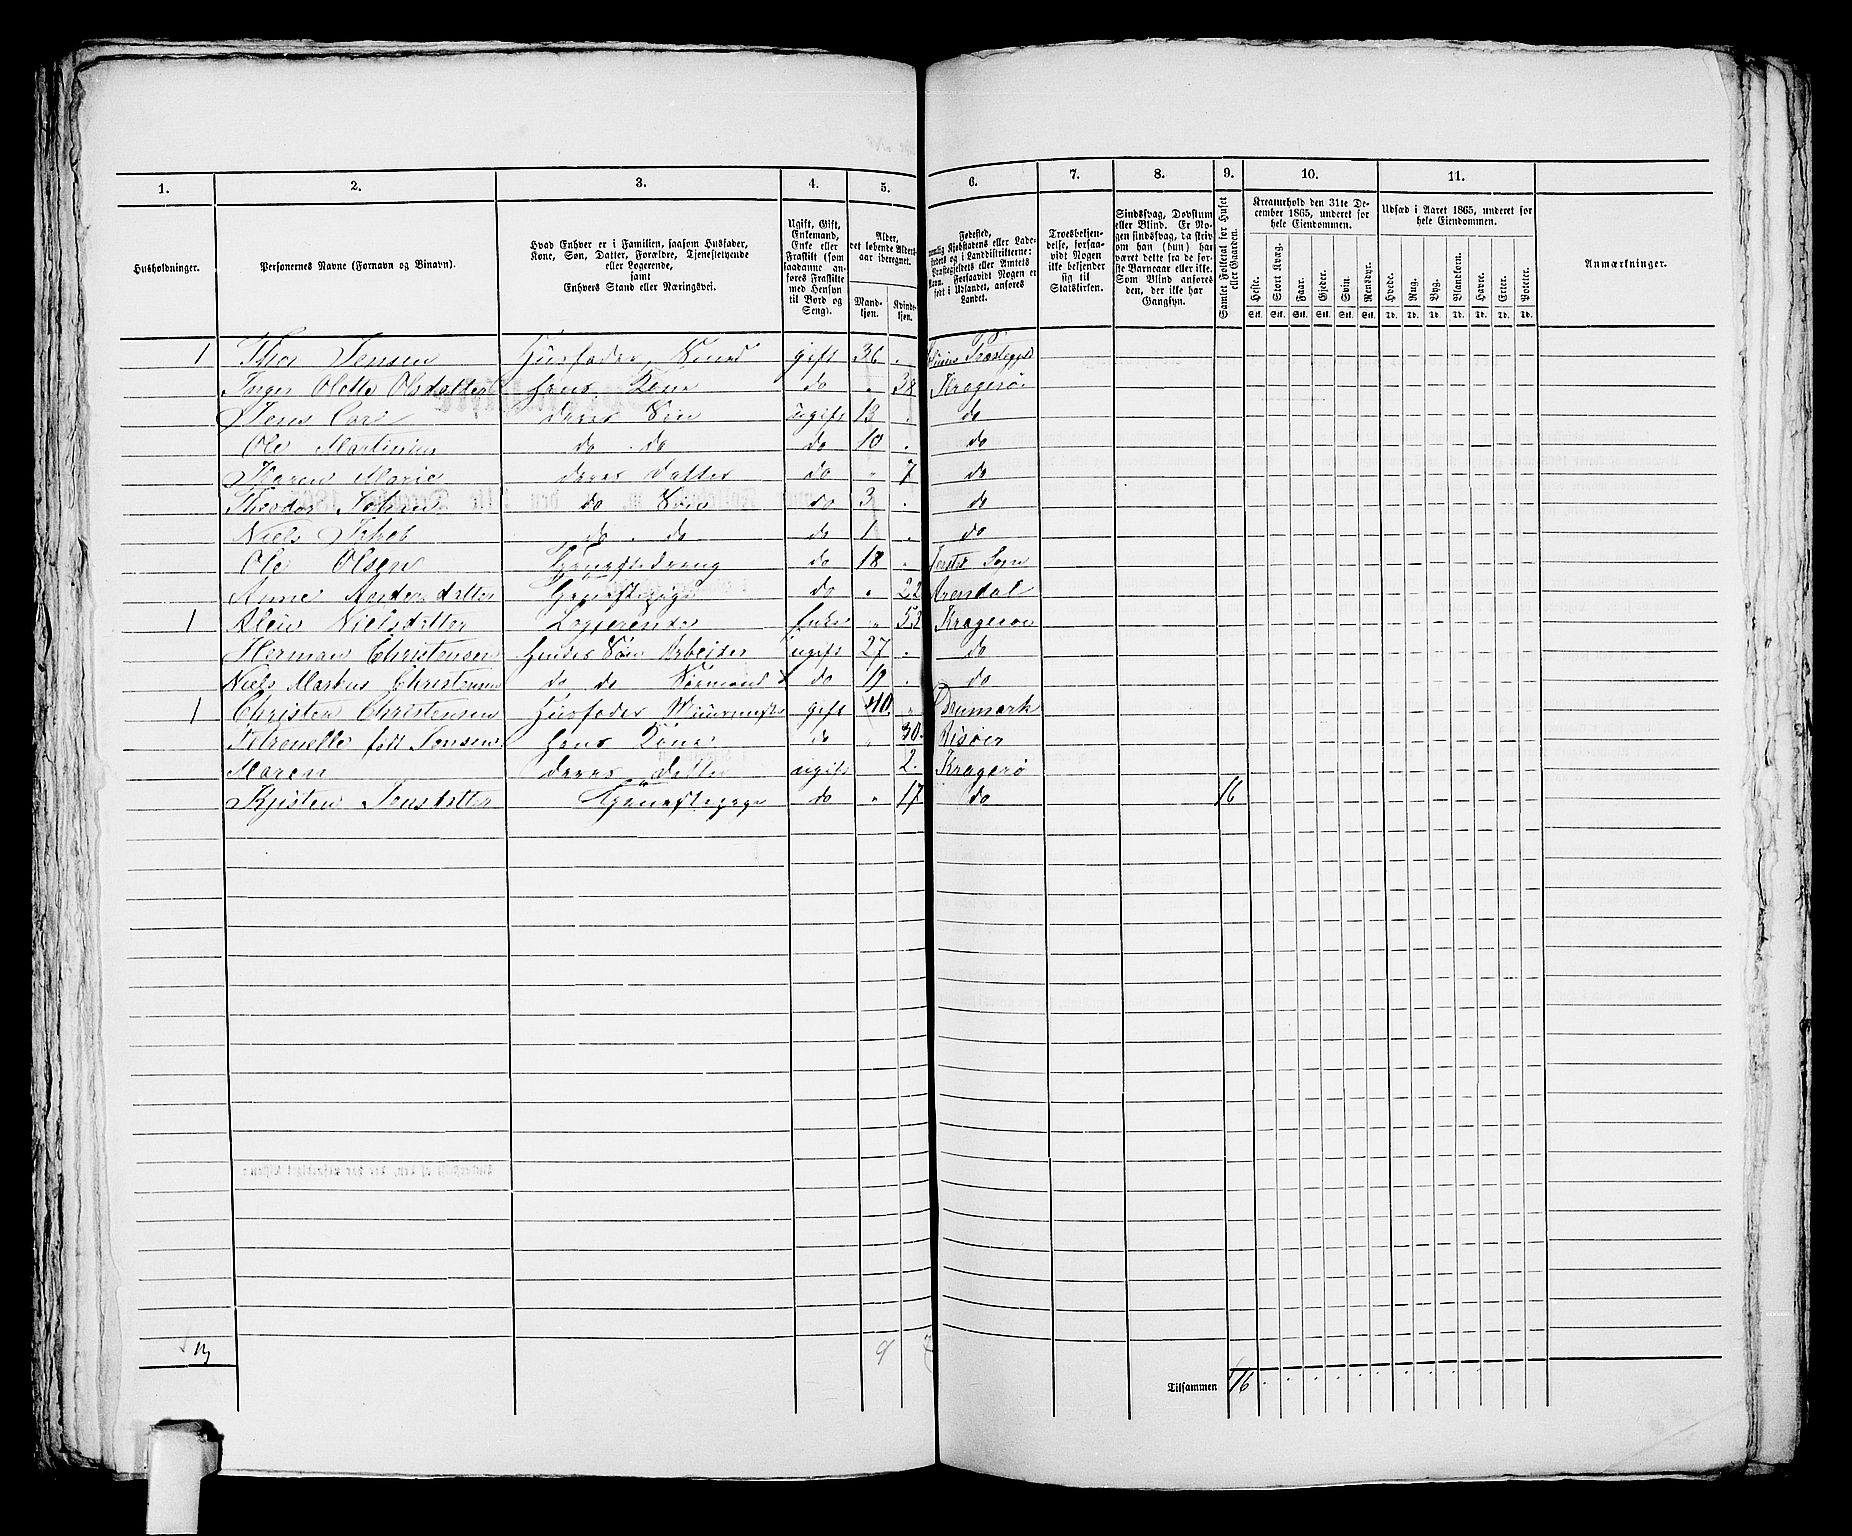 1. 2. 3. 4. 5. 6. 7. 8. 9. 10. 11.
Husholdninger.
Personernes Navne (Fornavn og Binavn).
Hvad Enhver er i Familien, saasom Husfader,
Kone, Søn, Datter, Forældre, Tjenestetyende
eller Logerende,
samt
Enhvers Stand eller Næringsvei.
Ugift, Gift,
Enkemand,
Enke eller
Fraskilt (som
saadanne an-
føres Fraskilte
med Hensyn
til Bord og
Seng).
Alder,
det løbende Alders-
aar iberegnet.
Mand-
kjøn.
Kvinde-
kjøn.
Fødested,
nemlig Kjøbstadens eller Lade-
stedets og i Landdistrikterne:
Præstegjeldets eller Amtets
Navn. Forsaavidt Nogen er
født i Udlandet, anføres
Landet.
Troesbekjen-
delse, forsaa-
vidt Nogen
ikke bekjender
sig til
Statskirken.
Sindssvag, Døvstum
eller Blind. Er No-
gen sindssvag, da skriv
om han (hun) har
været dette fra de før-
ste Barneaar eller ikke.
Som Blind anføres
den, der ikke har
Gangsyn.
Samlet Folketal for Huset
eller Gaarden.
Kreaturhold den 31te De-
cember 1865, underet for
hele Eiendommen.
Heste. Stort Kvæg. Faar. Gjeder. Svin. Rensdyr.
Stk. Stk. Stk. Stk. Stk. Stk.
Udsæd i Aaret 1865, underet for
hele Eiendommen.
Hvede. Rug. Byg. Blandkorn. Havre. Erter. Poteter.
Td. Td. Td. Td. Td. Td. Td.
Anmærkninger.
1 Thor Jensen Husfader gift 36 Præstegjeld
Inger Olette Olsdatter hans Kone do " 38 Kragerø
Jens deres Søn ugift 13 do
Ole Martinius do do do 10 do
Karen Marie deres Datter do " 7 do
Theodor Johan do Søn do 3 do
Niels Jakob do do do 1 do
Ole Olsen Tjenestedreng do 18 Sogn
Anne Andersdatter Tjenestepige do " 22 Arendal
1 Nielsdatter Logjerende Enke " 53 Kragerøe
Herman Christensen hendes Søn Arbeider ugift 27 do
Niels Markus Christensen do do Sømand do 19 do
1 Christen Christensen Husfader gift 40 Danmark
Petronelle født Jensen hans Kone do " 30 Risøer
Maren deres Datter ugift 2 Kragerø
Kjisten Jensdatter Tjenestepige do " 17 do 16
9 7
Tilsammen 16